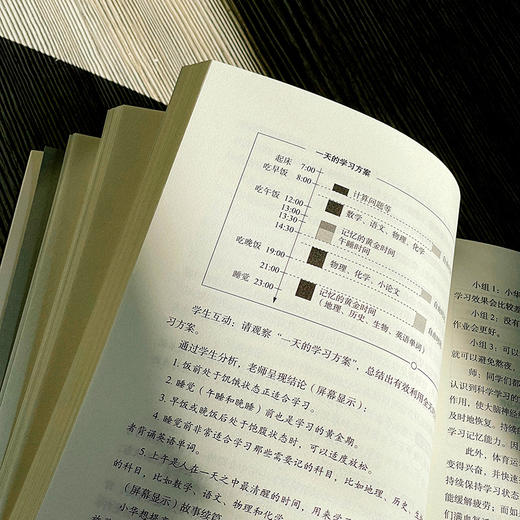 一天的学习方案
起床 7:00
吃早饭 8:00
计算问题等
吃午饭 12:00
数学、语文、物理、化学
13:00
13:30
记忆的黄金时间
午睡时间
14:30
吃晚饭 19:00
物理、化学、小论文
21:00
睡觉 23:00
记忆的黄金时间
(地理、历史、生物、英语单词)
学生互动：请观察“一天的学习方案”，总结出有效利用
习方案。
通过学生分析，老师呈现结论(屏幕显示)：
1. 饭前处于饥饿状态正适合学习。
2. 睡觉(午睡和晚睡)前也是学习的黄金期。
3. 早饭或晚饭后处于饱腹状态时，可以适度放松。
4. 睡觉前非常适合学习那些需要记的科目，比如地理、历史、
者背诵英语单词。
5. 上午是人在一天之中最清醒的时间，用来学
的科目，比如数学、语文、物理和化学
(屏幕显示)故事续篇
小华想提高
小组1：小华
学习效果会比较差
小组2：没有
作业会更好。
小组3：可以
就可以避免熬夜，
师：同学们都
认识到科学学习的
作用，使大脑神经
及时地恢复。持续
学习记忆能力。因
此外，体育运
变得兴奋，并快速
持续保持学习状态
能缓解疲劳；而如
们满血复